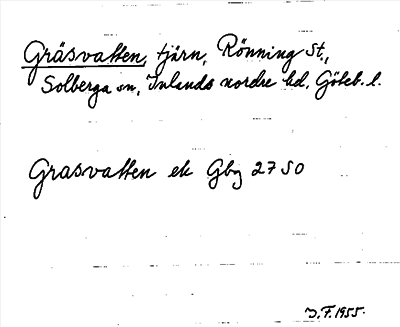 Gräsvatten, tjärn, Rönning St.,
Solberga sn, Inlands nordre hd, Göteb. l.
Grasvatten ek Gbg 2750
J.F. 1955.